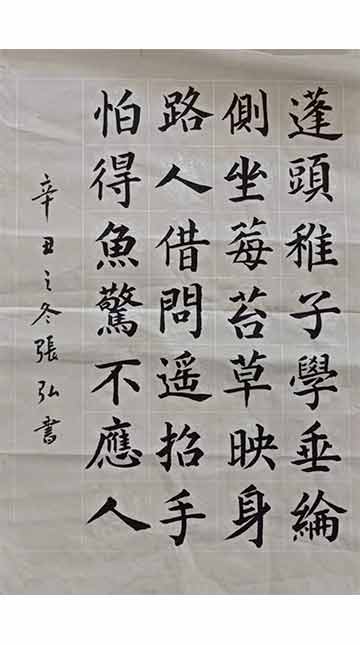 蓬頭稚子學垂綸
側坐莓苔草映身
路人借問遥招手
怕得魚驚不應人
辛丑之冬張弘書